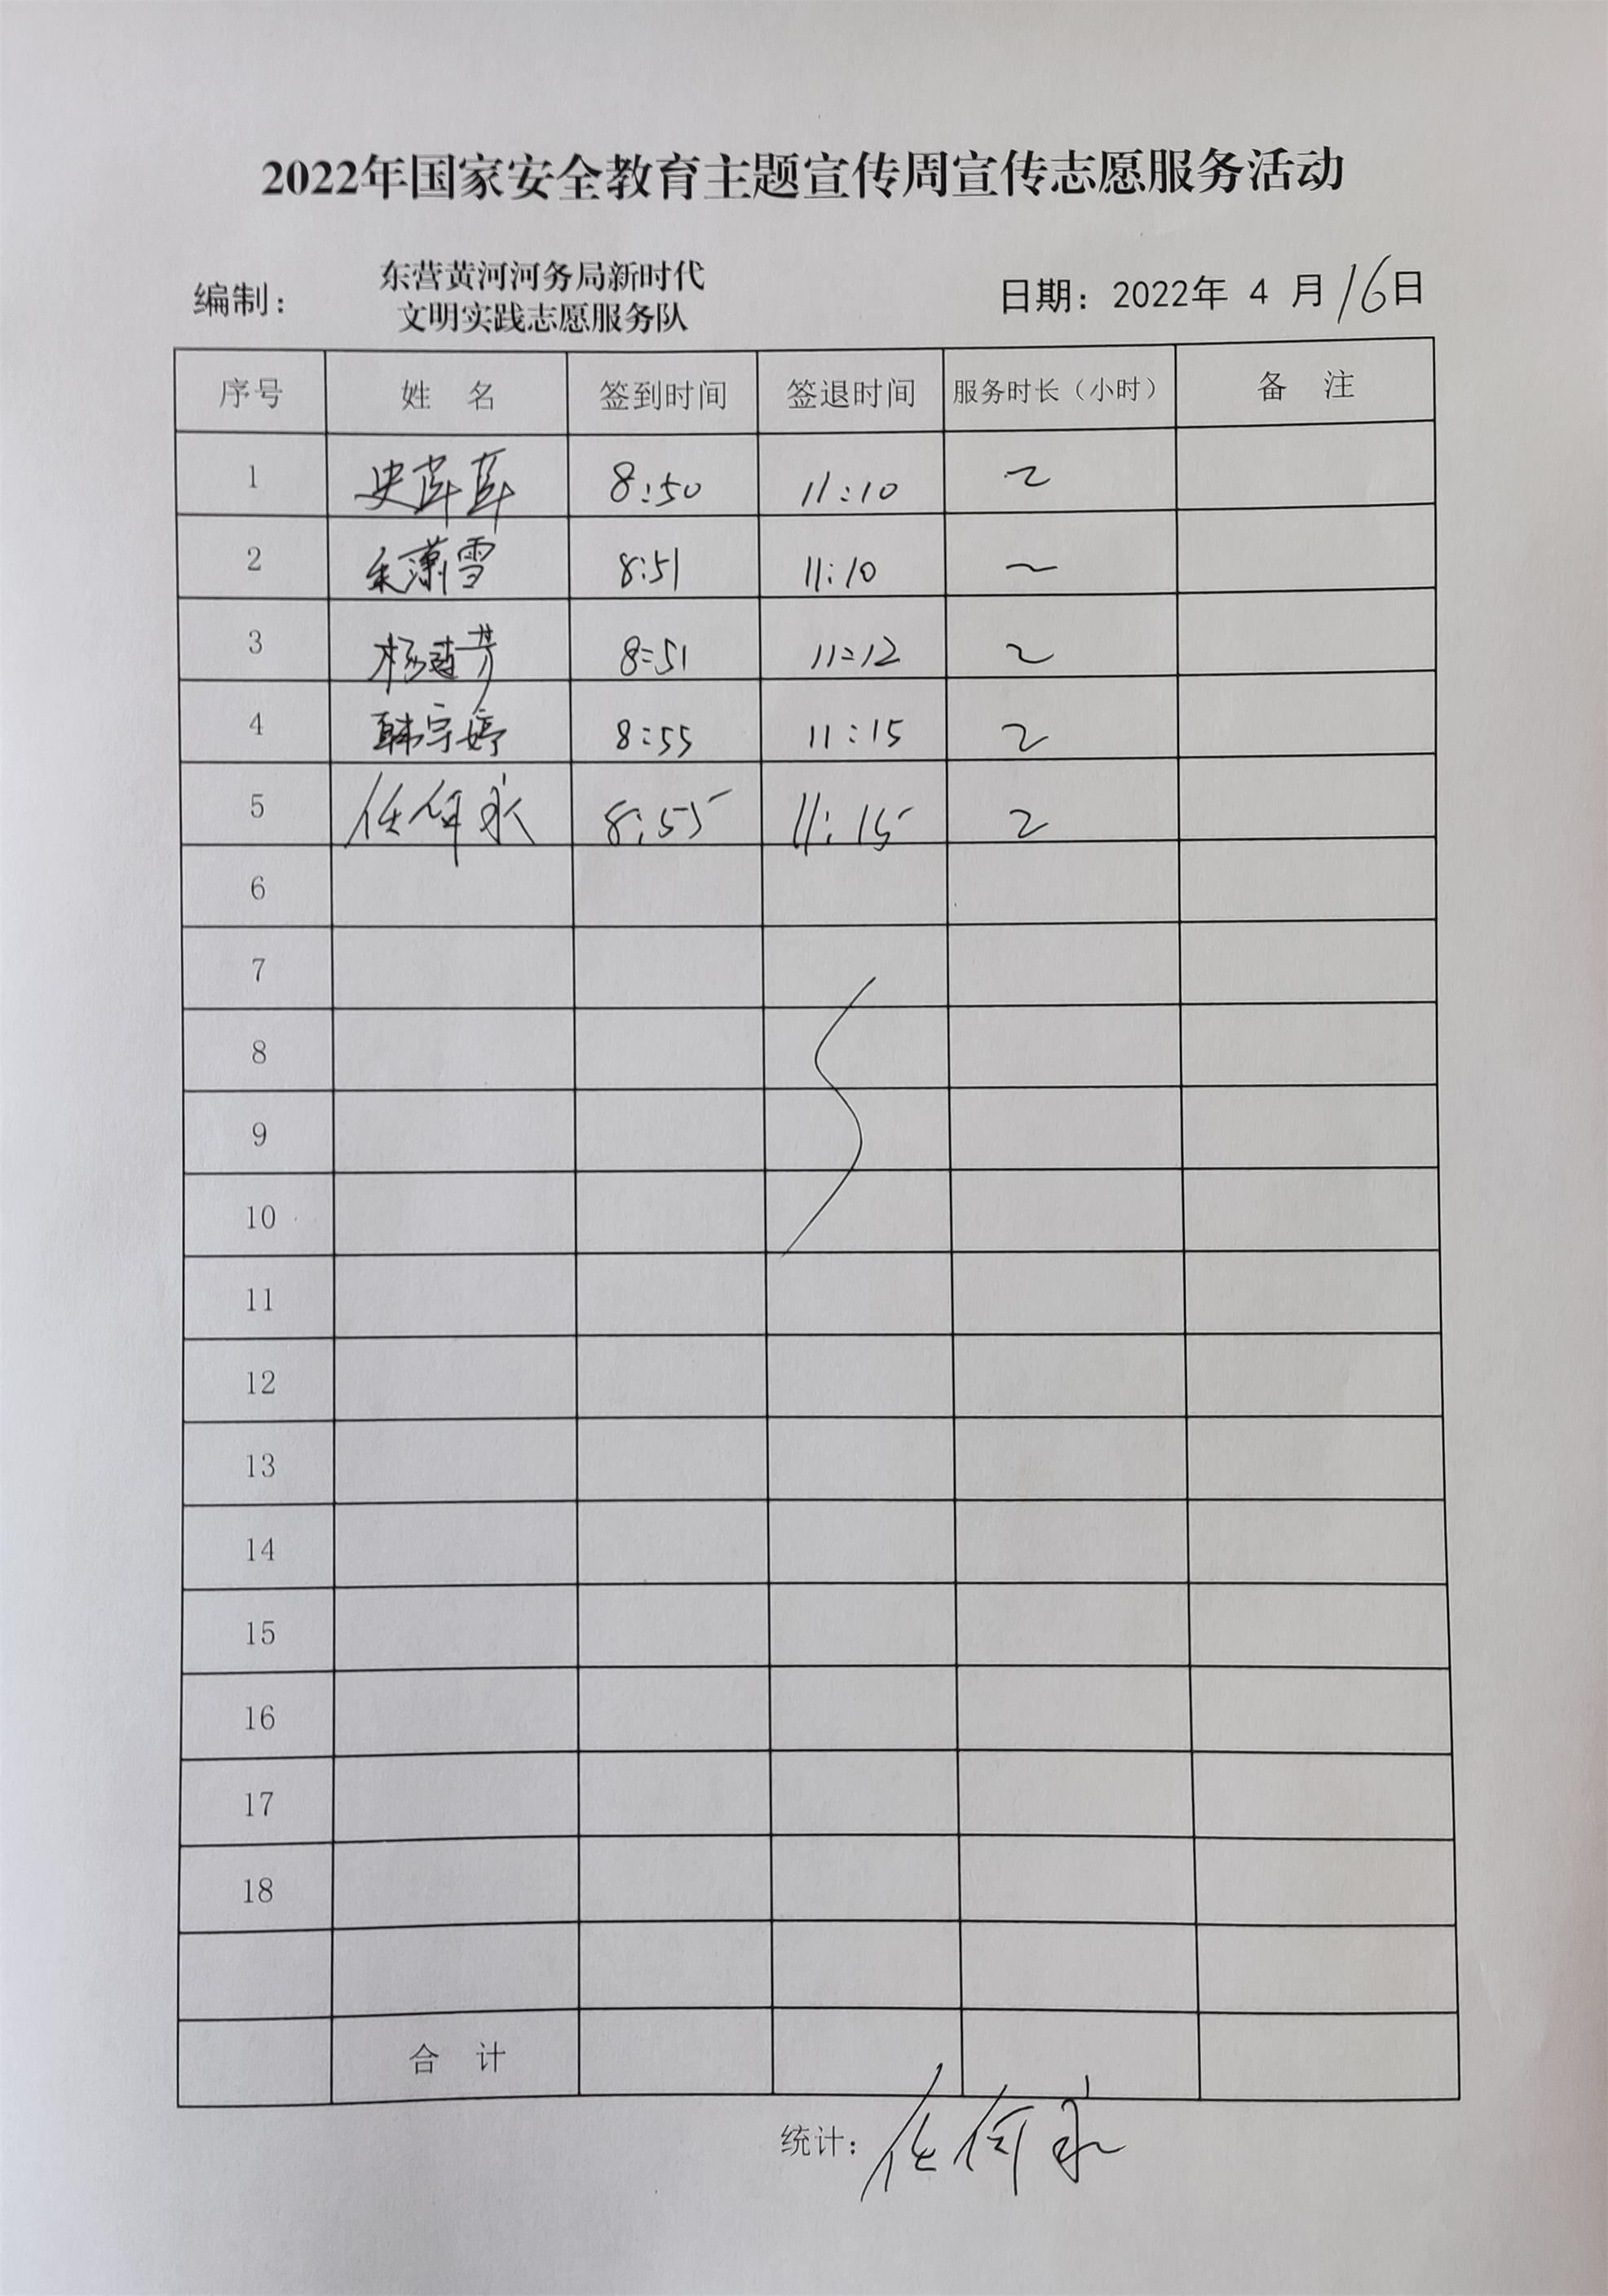 2022年国家安全教育主题宣传周宣传志愿服务活动
编制： 东营黄河河务局新时代 文明实践志愿服务队 日期：2022年 4 月 16日
序号 姓 名 签到时间 签退时间 服务时长（小时） 备 注
1 史 8:50 11:10 2
2 雪 8:51 11:10
3 杨 芳 8:51 11:12 2
4 韩宗婷 8:55 11:15 2
5 任 永 8:55 11:15 2
6
7
8
9
10
11
12
13
14
15
16
17
18
合 计
统计：任 永